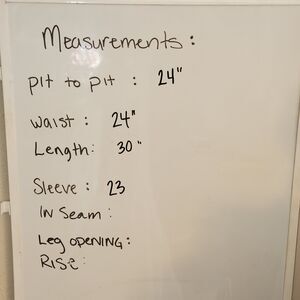 Measurements:
pit to pit : 24"
waist : 24"
Length: 30"
Sleeve : 23
IN Seam :
Leg OPENING:
RISE: